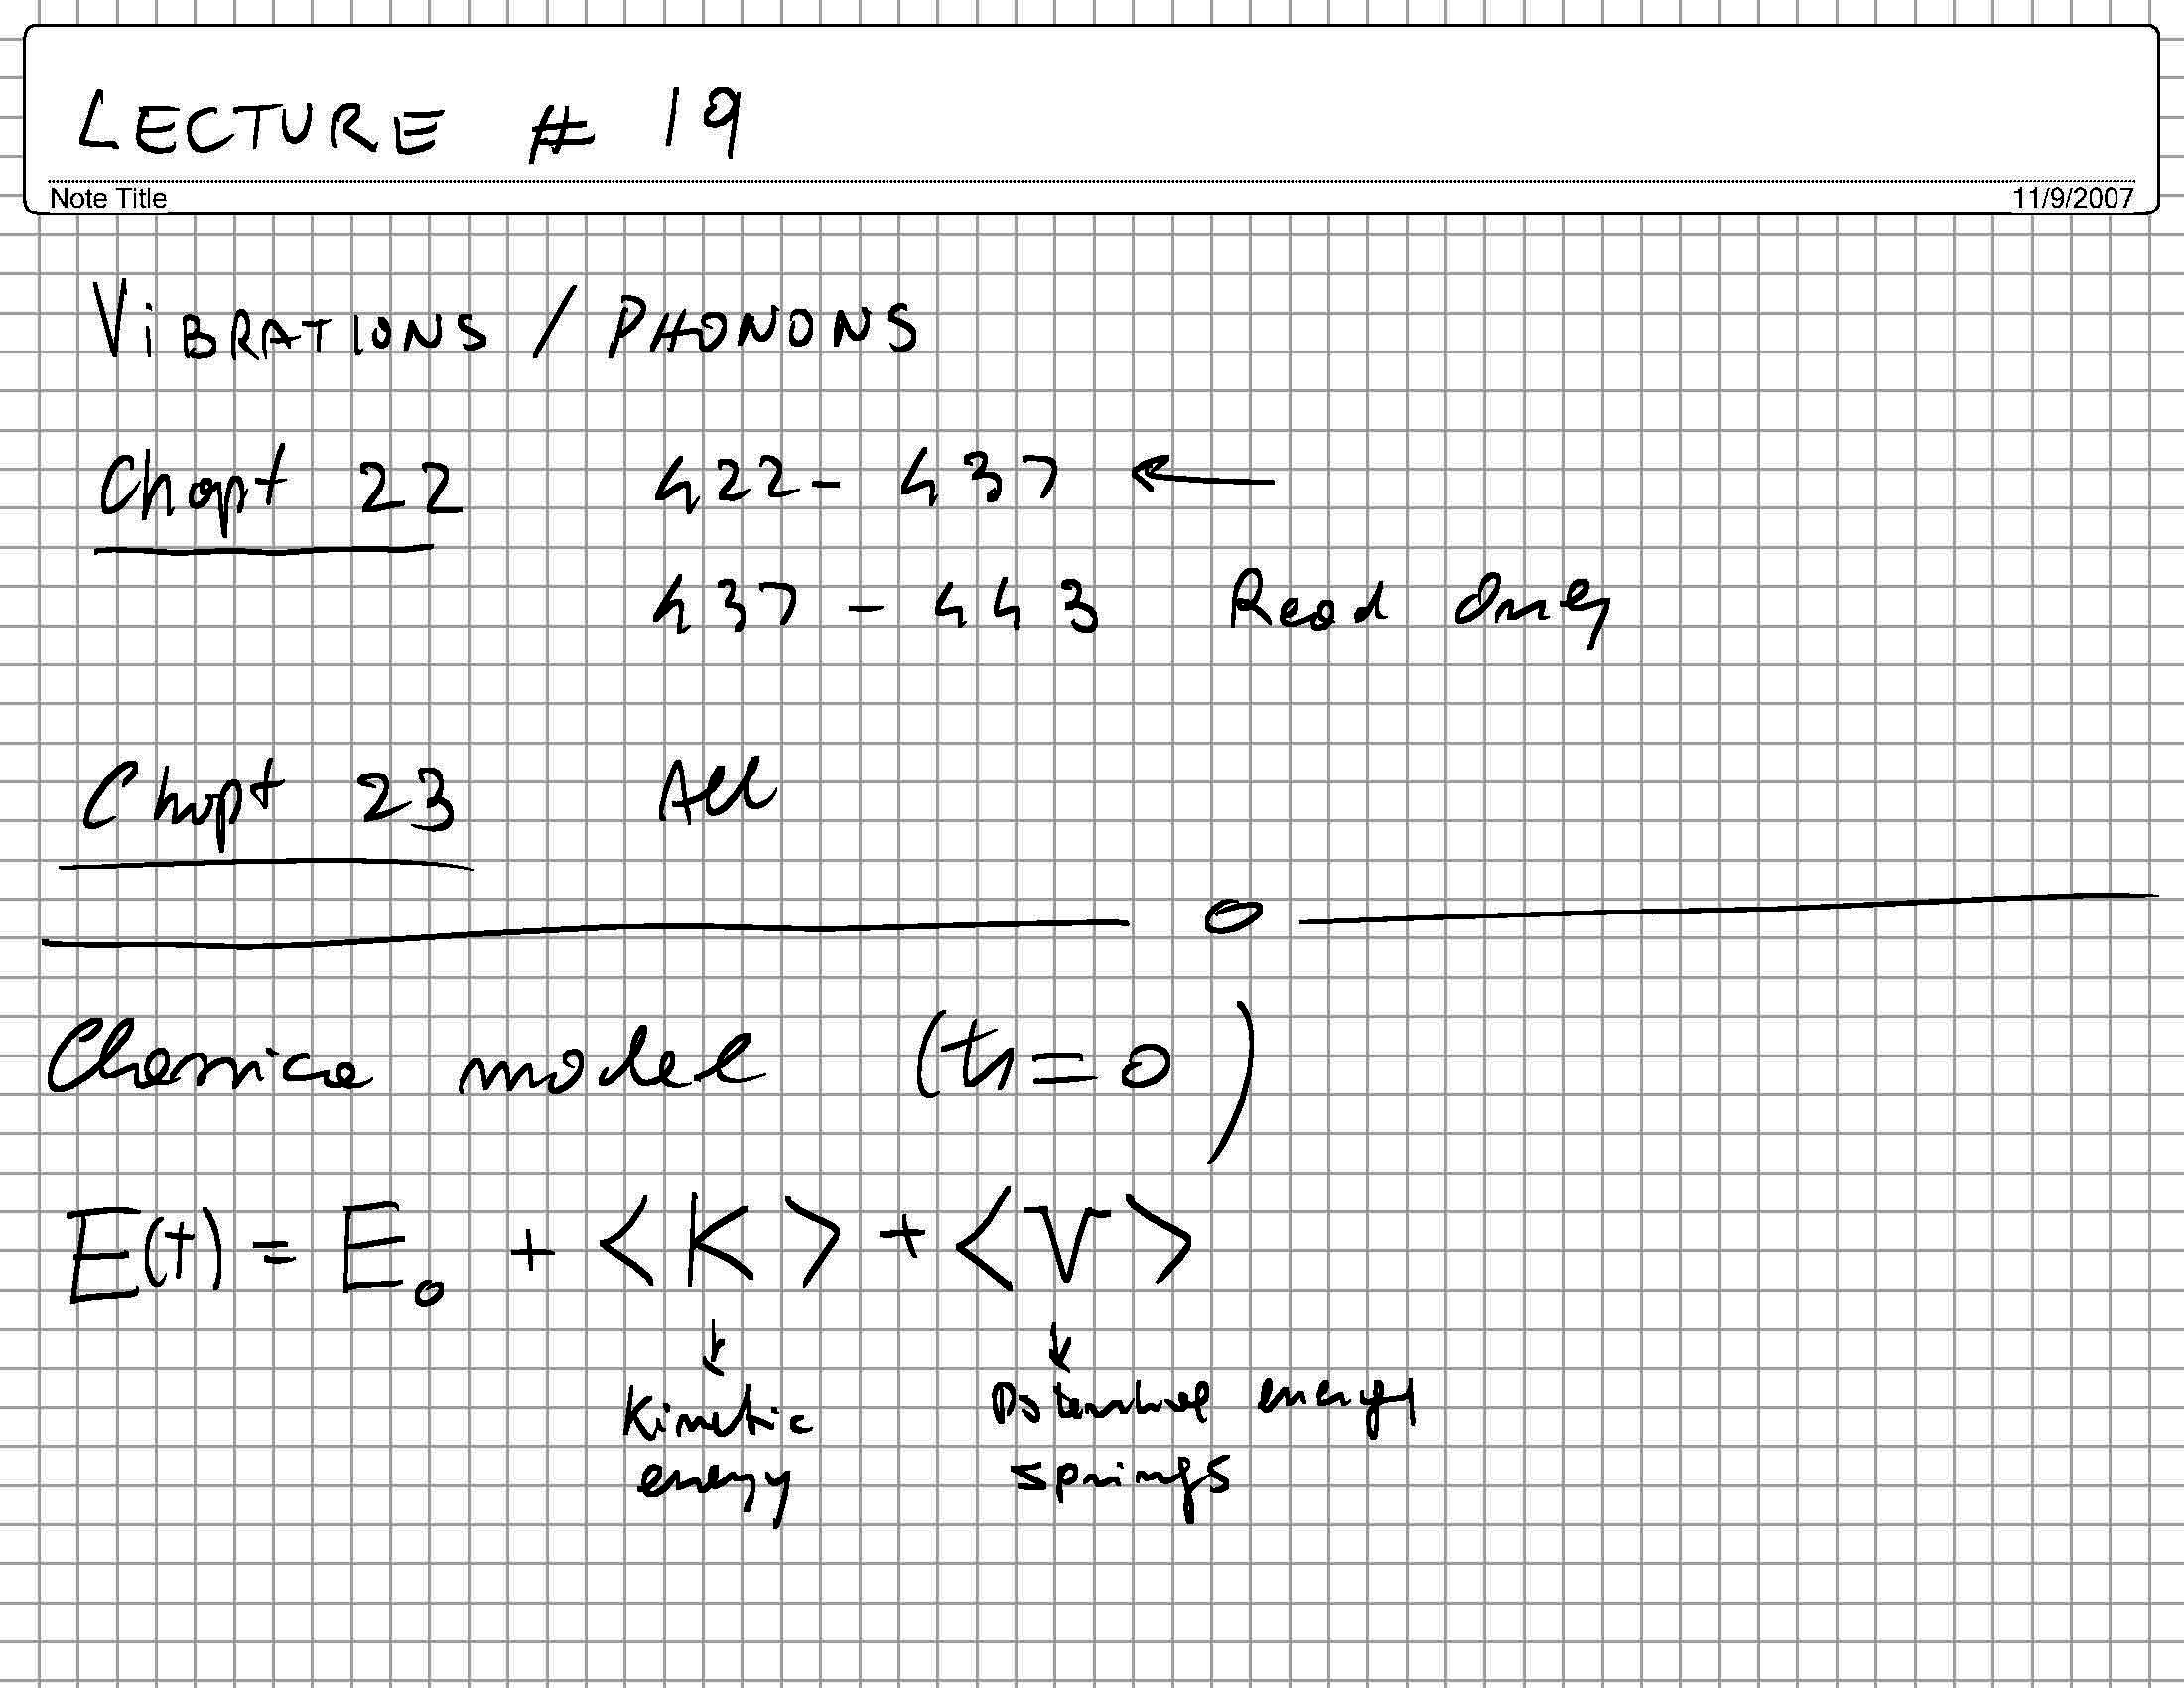 LECTURE # 19
Note Title 11/9/2007
VIBRATIONS / PHONONS
Chapt 22 422 - 437 ←
437 - 443 Read Only
Chapt 23 All
model (ħ = 0)
E(t) = E₀ + <K> + <V>
Kinetic energy
Potential energy springs